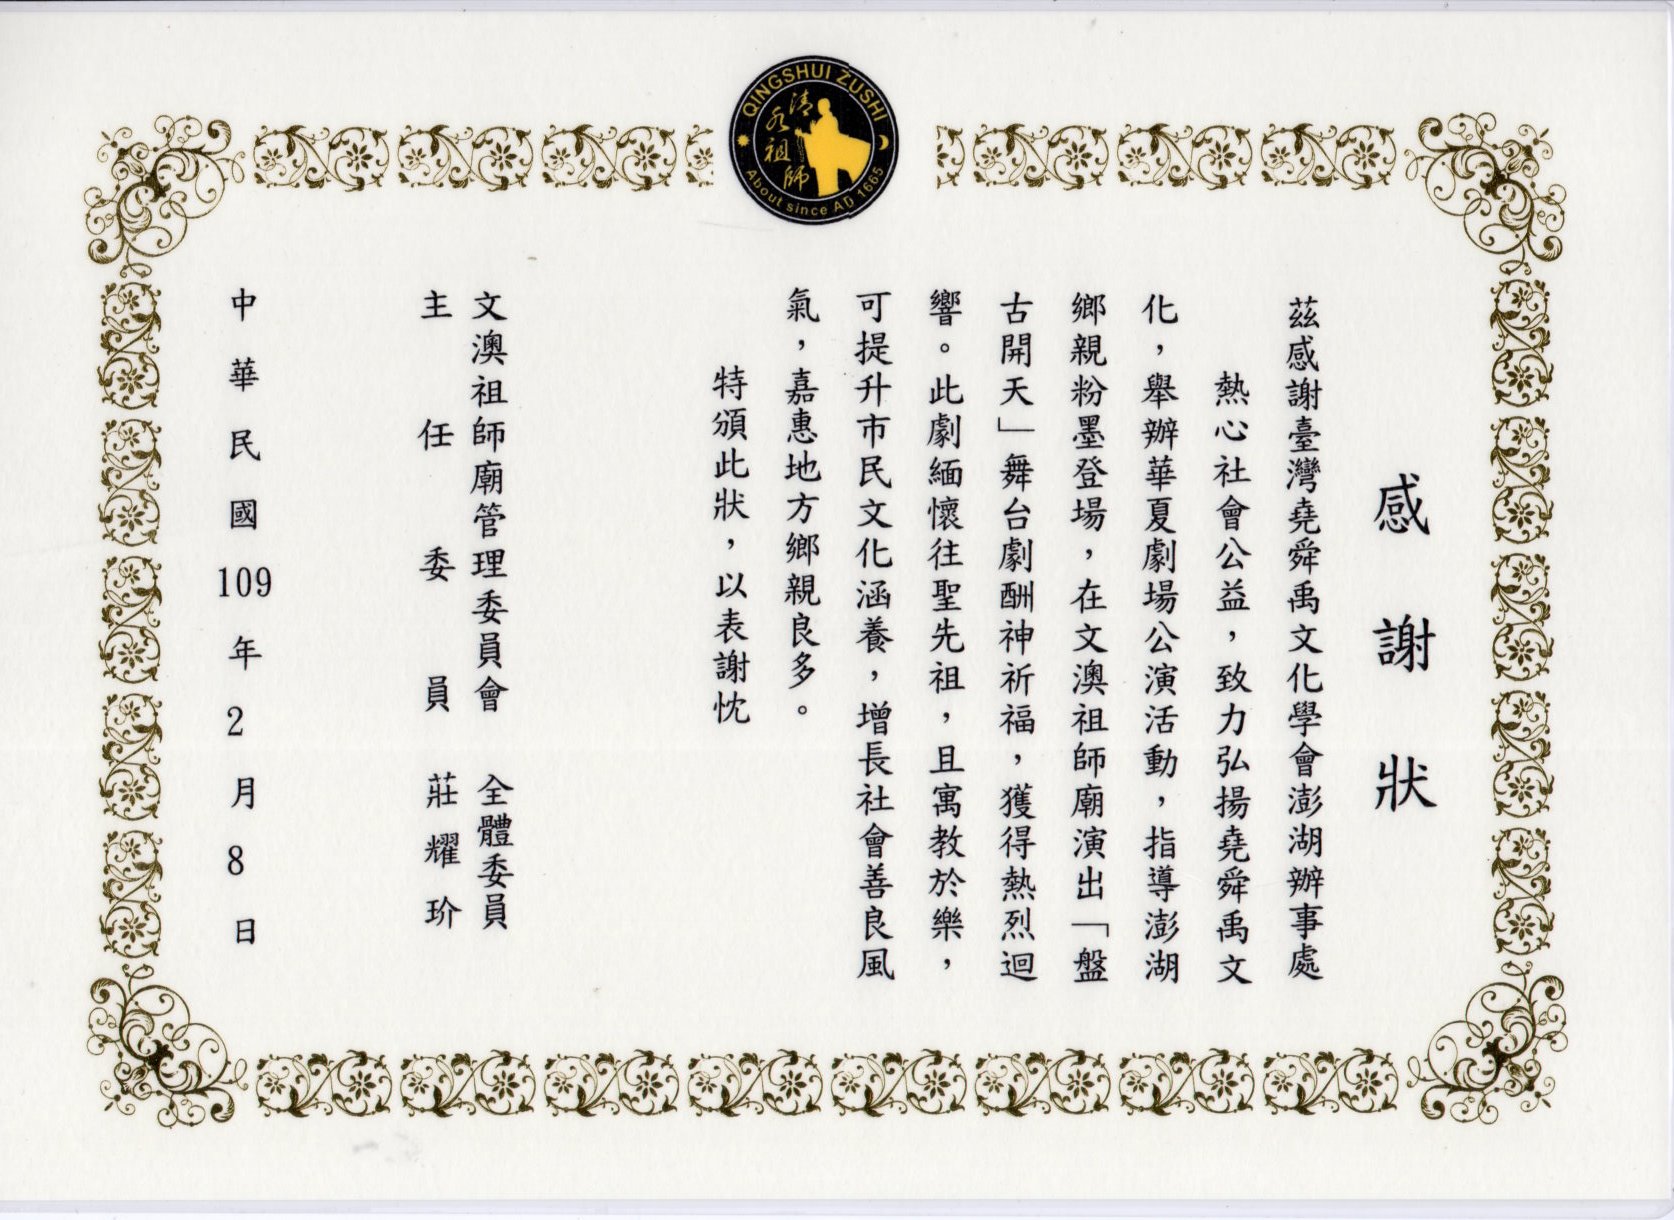 QINGSHUI ZUSHI
清水祖師
About since AD 1665
感謝狀
茲感謝臺灣堯舜禹文化學會澎湖辦事處
熱心社會公益，致力弘揚堯舜禹文
化，舉辦華夏劇場公演活動，指導澎湖
鄉親粉墨登場，在文澳祖師廟演出「盤
古開天」舞台劇酬神祈福，獲得熱烈迴
響。此劇緬懷往聖先祖，且寓教於樂，
可提升市民文化涵養，增長社會善良風
氣，嘉惠地方鄉親良多。
特頒此狀，以表謝忱
文澳祖師廟管理委員會 全體委員
主任委員 莊耀玠
中華民國109年2月8日